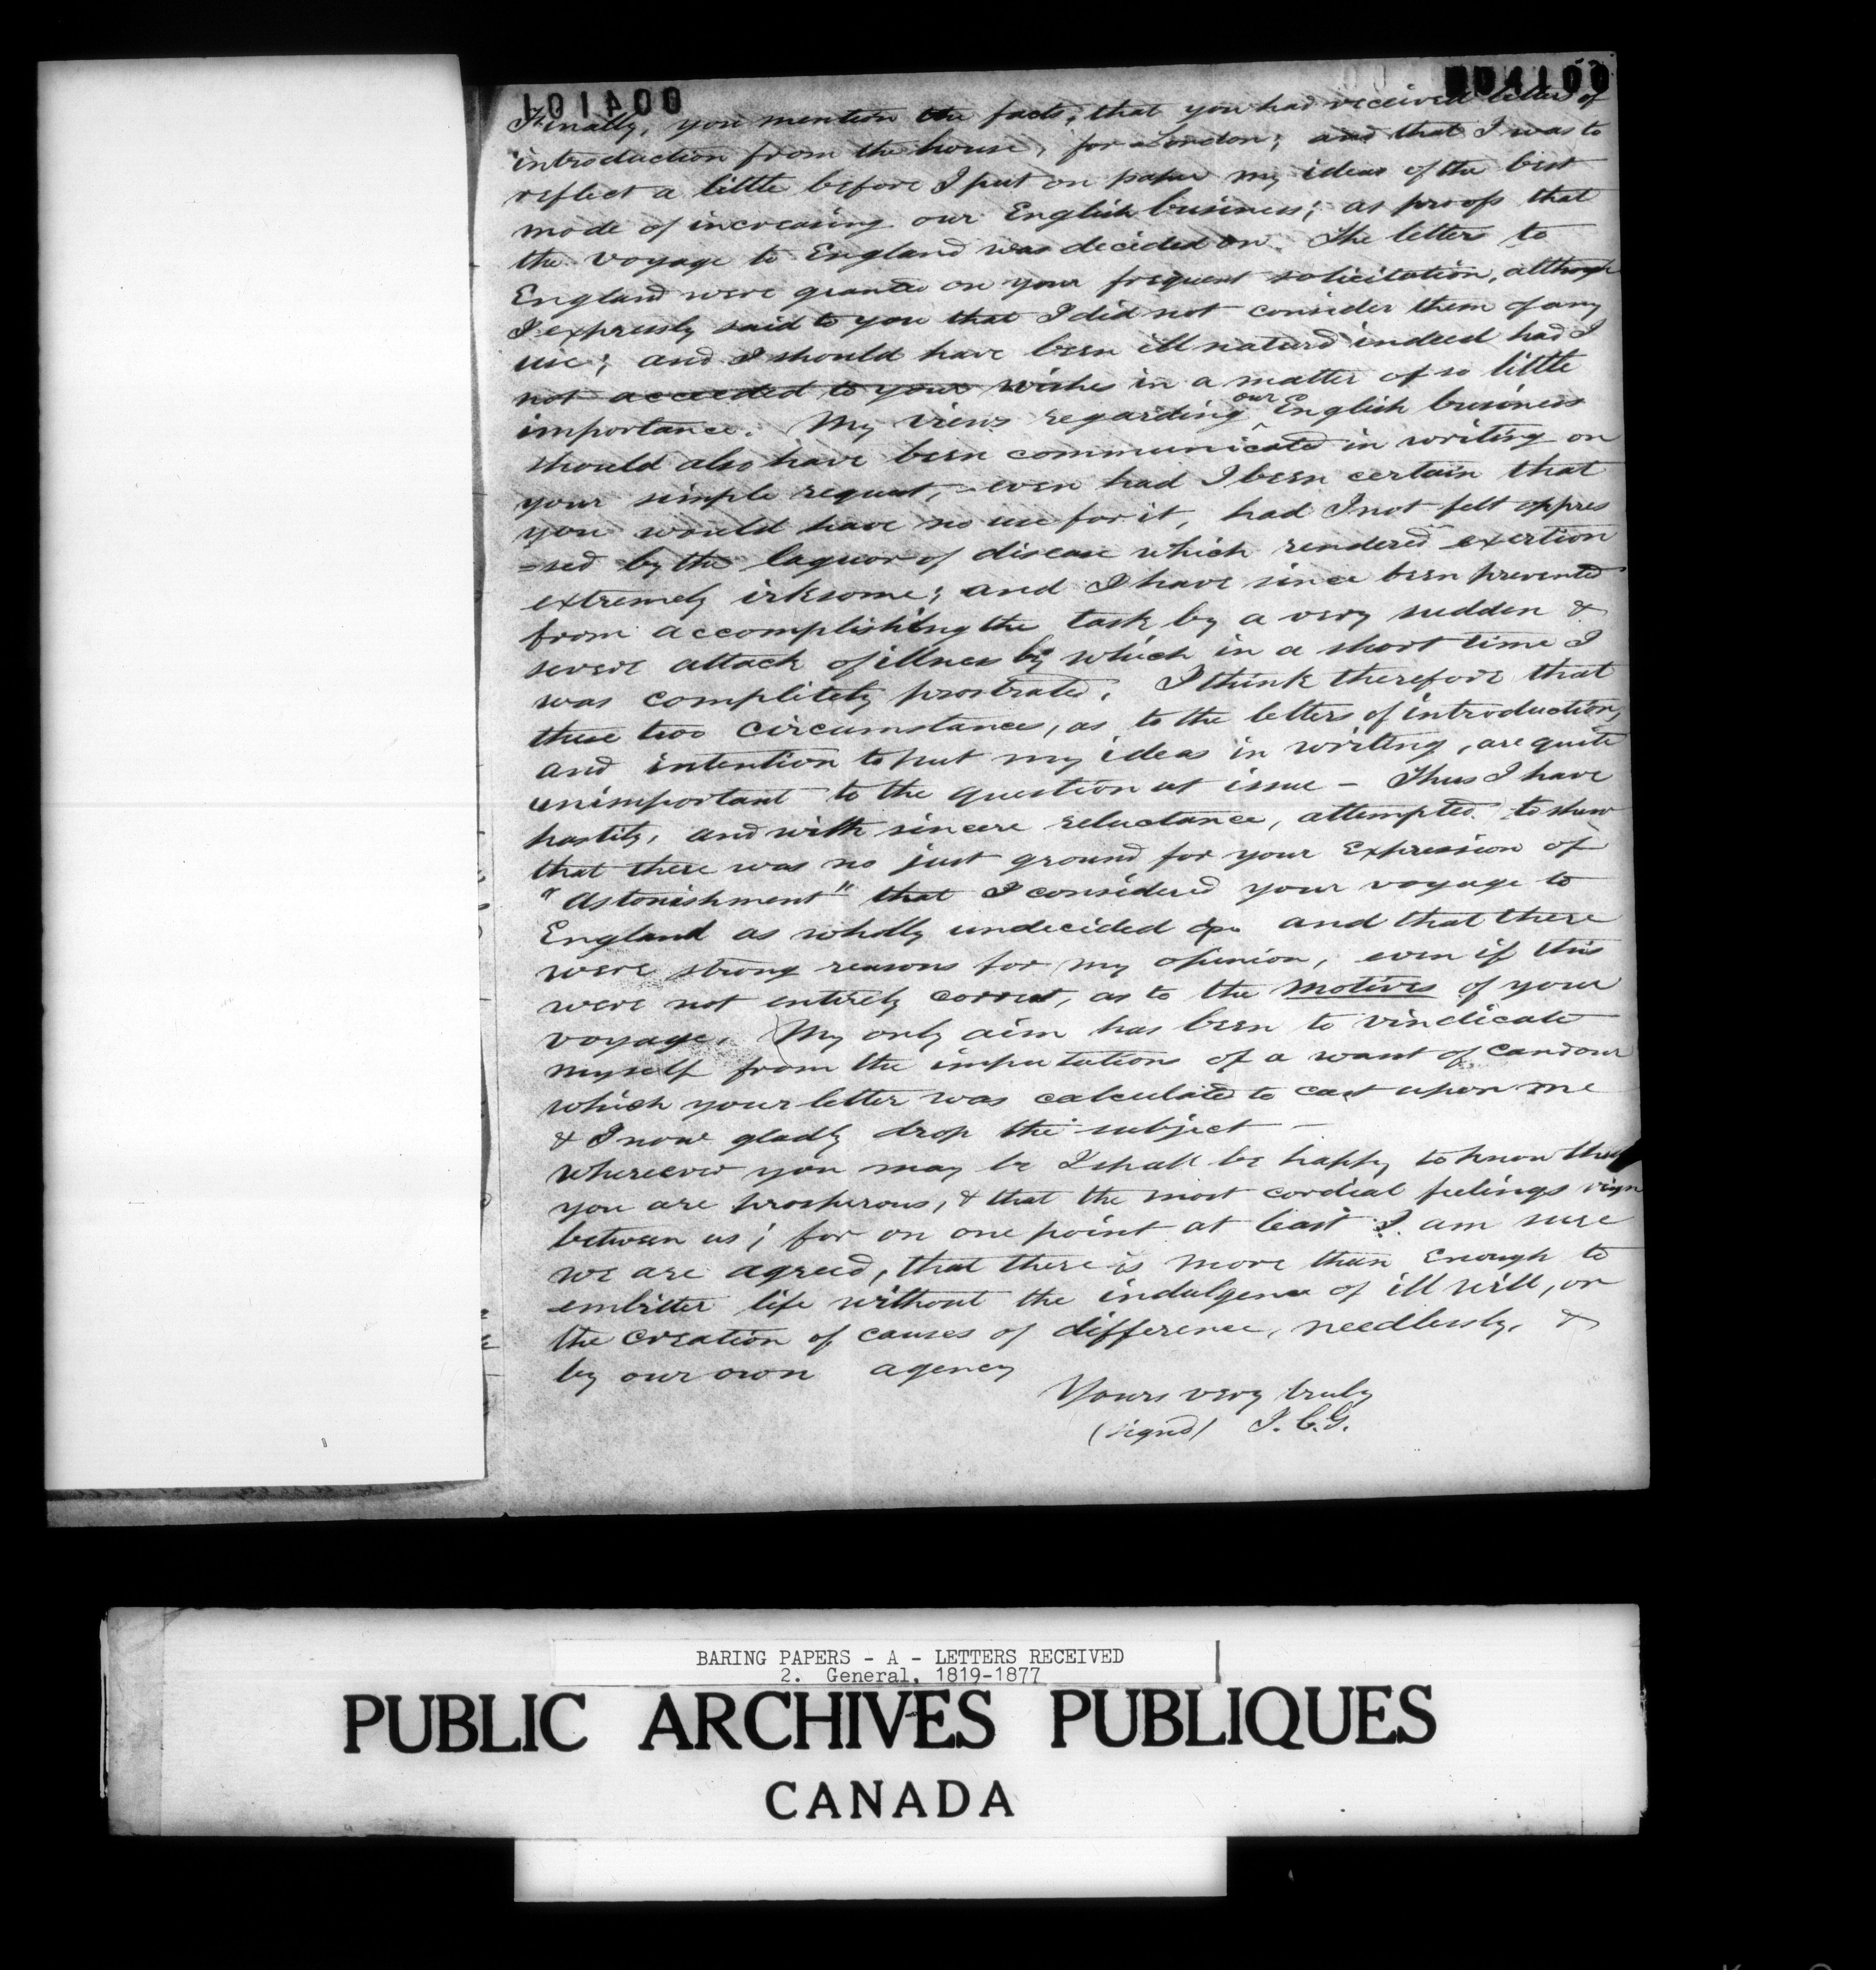 004100
Finally, you mention the facts, that you had received letters of
introduction from the house, for London; and that I was to
reflect a little before I put on paper my ideas of the best
mode of increasing our English business; as proofs that
the voyage to England was decided on. The letters to
England were granted on your frequent solicitation, although
I expressly said to you that I did not consider them of any
use; and I should have been ill natured indeed had I
not acceeded to your wishes in a matter of so little
importance. My views regarding our English business
should also have been communicated in writing on
your simple request, even had I been certain that
you would have no use for it, had I not felt oppres
=sed by the laguor of disease which rendered exertion
extremely irksome; and I have since been prevented
from accomplishing the task by a very sudden &
severe attack of illness by which in a short time I
was completely prostrated. I think therefore that
these two circumstances, as to the letters of introduction,
and intention to put my ideas in writing, are quite
unimportant to the question at issue - Thus I have
hastily, and with sincere reluctance, attempted to shew
that there was no just ground for your expression of
"Astonishment" that I considered your voyage to
England as wholly undecided and that there
were strong reasons for my opinion, even if this
were not entirely correct, as to the motives of your
voyage. My only aim has been to vindicate
myself from the imputations of a want of candour
which your letter was calculated to cast upon me
& I now gladly drop the subject -
Wherever you may be I shall be happy to know that
you are prosperous, & that the most cordial feelings reign
between us; for on one point at least I am sure
we are agreed, that there is more than enough to
embitter life without the indulgence of ill will, or
the creation of causes of difference, needlessly, &
by our own agency
Yours very truly
(signd) J. C. G.
BARING PAPERS - A - LETTERS RECEIVED
2. General, 1819-1877
PUBLIC ARCHIVES PUBLIQUES
CANADA